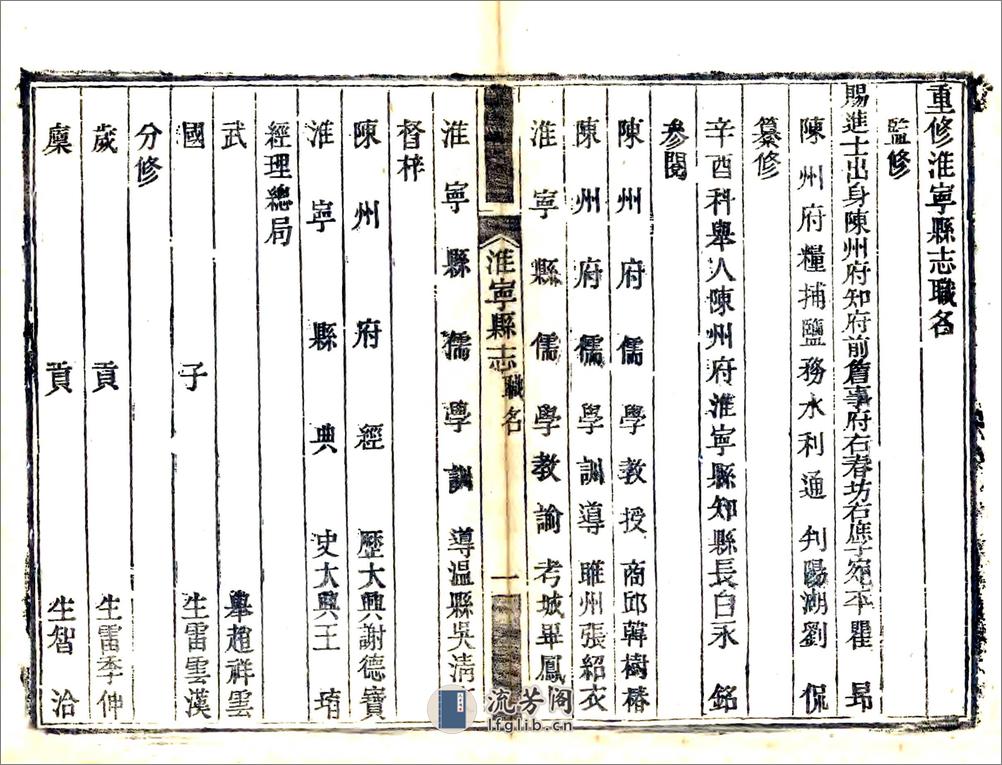 重修淮寧縣志職名
監修
賜進士出身陳州府知府前詹事府右春坊右庶子宛平瞿昂
陳州府糧捕鹽務水利通判陽湖劉侃
纂修
辛酉科舉人陳州府淮寧縣知縣長白永銘
參閱
陳州府儒學教授商邱韓樹椿
陳州府儒學訓導睢州張紹衣
淮寧縣儒學教諭考城畢鳳
淮寧縣志
職名
一
淮寧縣儒學訓導溫縣吳清
督梓
陳州府經歷大興謝德寶
淮寧縣典史大興王堉
經理總局
武舉趙祥雲
國子生雷雲漢
分修
歲貢生雷季仲
廩貢生智洽
流芳阁
lfglib.cn